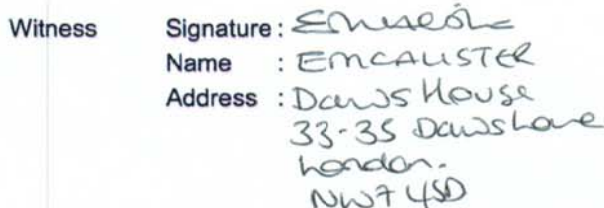 Witness Signature :
Name : EMCALISTER
Address : Daws House
33-35 Daws Lane
London.
NW7 4SD